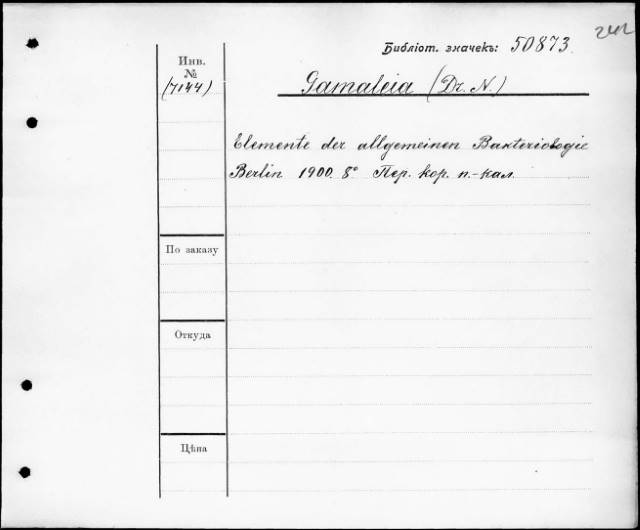 Библіот. значекъ: 50873
Инв.
№
(7144)
Gamaleia (Dr. N.)
Elemente der allgemeinen Bakteriologie
Berlin 1900. 8° Пер. кор. п.-кал.
По заказу
Откуда
Цѣна